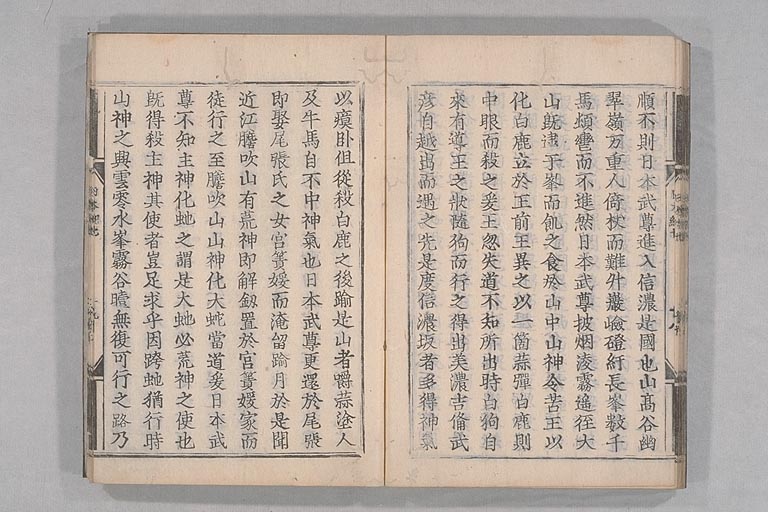 順不則日本武尊進入信濃是國也山髙谷幽
翠嶺万重人倚杖而難升巖嶮磴紆長峯數千
馬頓轡而不進然日本武尊披烟凌霧遥徑大
山旣逮于峯而飢之食於山中山神令苦王以
化白鹿立於王前王異之以一箇蒜彈白鹿則
中眼而殺之爰王忽失道不知所出時白狗自
來有導王之狀隨狗而行之得出美濃吉備武
彦自越出而遇之先是度信濃坂者多得神氣
以瘼臥但從殺白鹿之後踰是山者嚼蒜塗人
及牛馬自不中神氣也日本武尊更還於尾張
即娶尾張氏之女宮簀媛而淹留踰月於是聞
近江膽吹山有荒神即解劔置於宮簀媛家而
徒行之至膽吹山山神化大蛇當道爰日本武
尊不知主神化虵之謂是大虵必荒神之使也
旣得殺主神其使者豈足求乎因跨虵猶行時
山神之興雲零氷峯霧谷曀無復可行之路乃